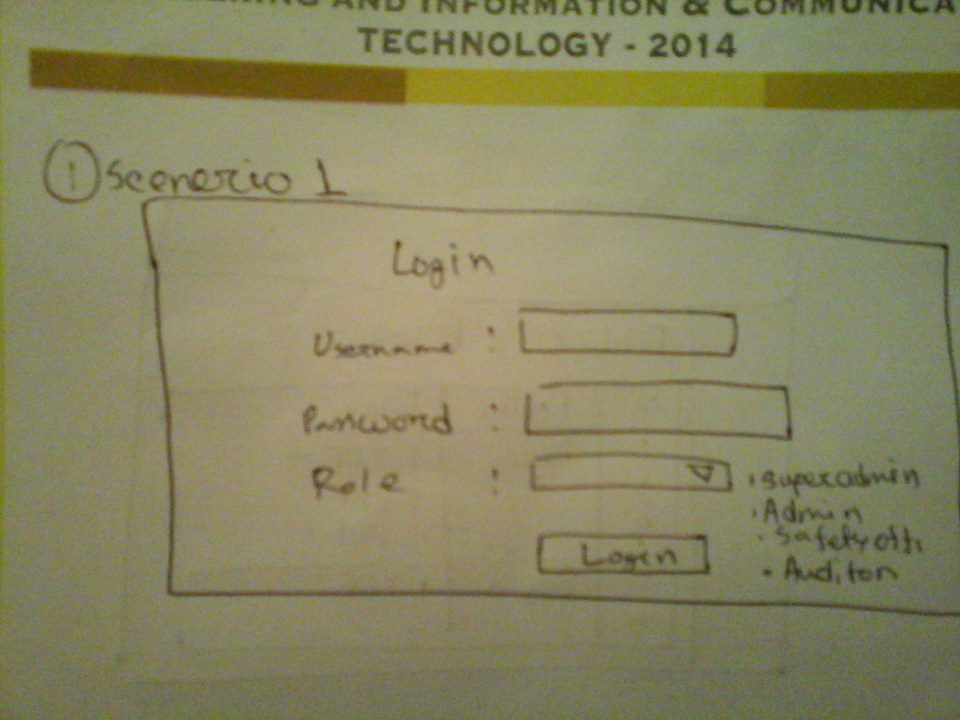 AND INFORMATION & COMMUNICA
TECHNOLOGY - 2014
① Scenerio 1
Login
Username :
Password :
Role :
• superadmin
• Admin
• Safety offi
• Auditor
Login